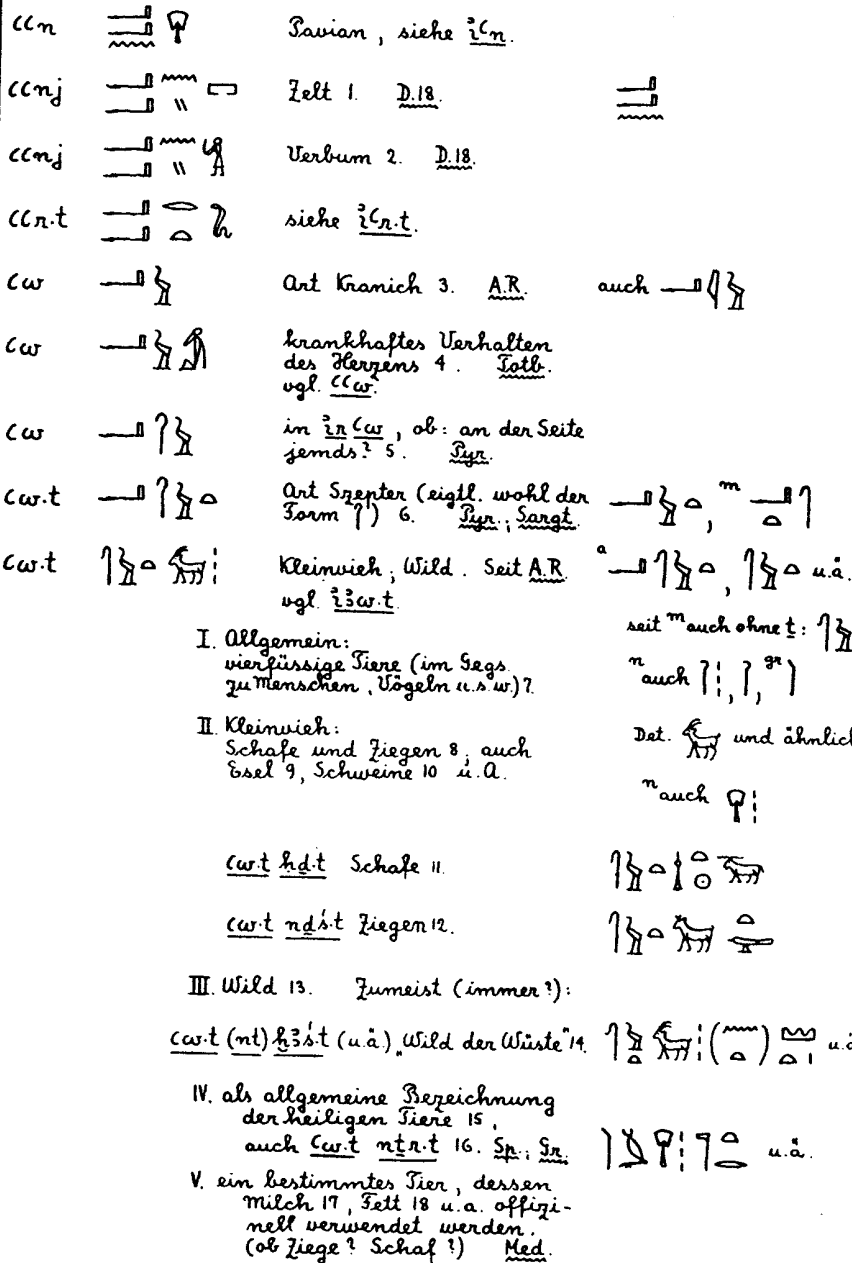 ꜥꜥn Pavian, siehe ỉꜥn.
ꜥꜥnj Zelt 1. D.18.
ꜥꜥnj Verbum 2. D.18.
ꜥꜥr.t siehe ỉꜥr.t.
ꜥw Art Kranich 3. A.R. auch
ꜥw krankhaftes Verhalten
des Herzens 4. Totb.
vgl. ꜥꜥw.
ꜥw in ỉr ꜥw, ob: an der Seite
jemds? 5. Pyr.
ꜥw.t Art Szepter (eigtl. wohl der
Form ) 6. Pyr.; Sargt. , m
ꜥw.t Kleinvieh; Wild. Seit A.R. a , u.ä.
vgl. ỉꜣw.t.
seit m auch ohne t:
I. Allgemein:
vierfüssige Tiere (im Gegs.
zu Menschen, Vögeln u.s.w.) 7.
n auch , , gr
II. Kleinvieh:
Schafe und Ziegen 8, auch
Esel 9, Schweine 10 u.A.
Det. und ähnlich
n auch
ꜥw.t ḥḏ.t Schafe 11.
ꜥw.t nḏś.t Ziegen 12.
III. Wild 13. Zumeist (immer?):
ꜥw.t (nt) ḫꜣś.t (u.ä.) „Wild der Wüste" 14. ( ) u.ä
IV. als allgemeine Bezeichnung
der heiligen Tiere 15,
auch ꜥw.t nṯr.t 16. Sp.; Gr. u.ä.
V. ein bestimmtes Tier, dessen
Milch 17, Fett 18 u.a. offizi-
nell verwendet werden.
(ob Ziege? Schaf?) Med.